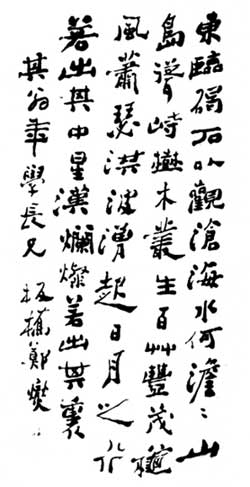 東臨碣石以觀滄海水何澹〻山
島聳峙樹木叢生百艸豐茂龝
風蕭瑟洪波湧起日月之行
若出其中星漢爛燦若出其裏
其翁年學長兄 板橋鄭燮